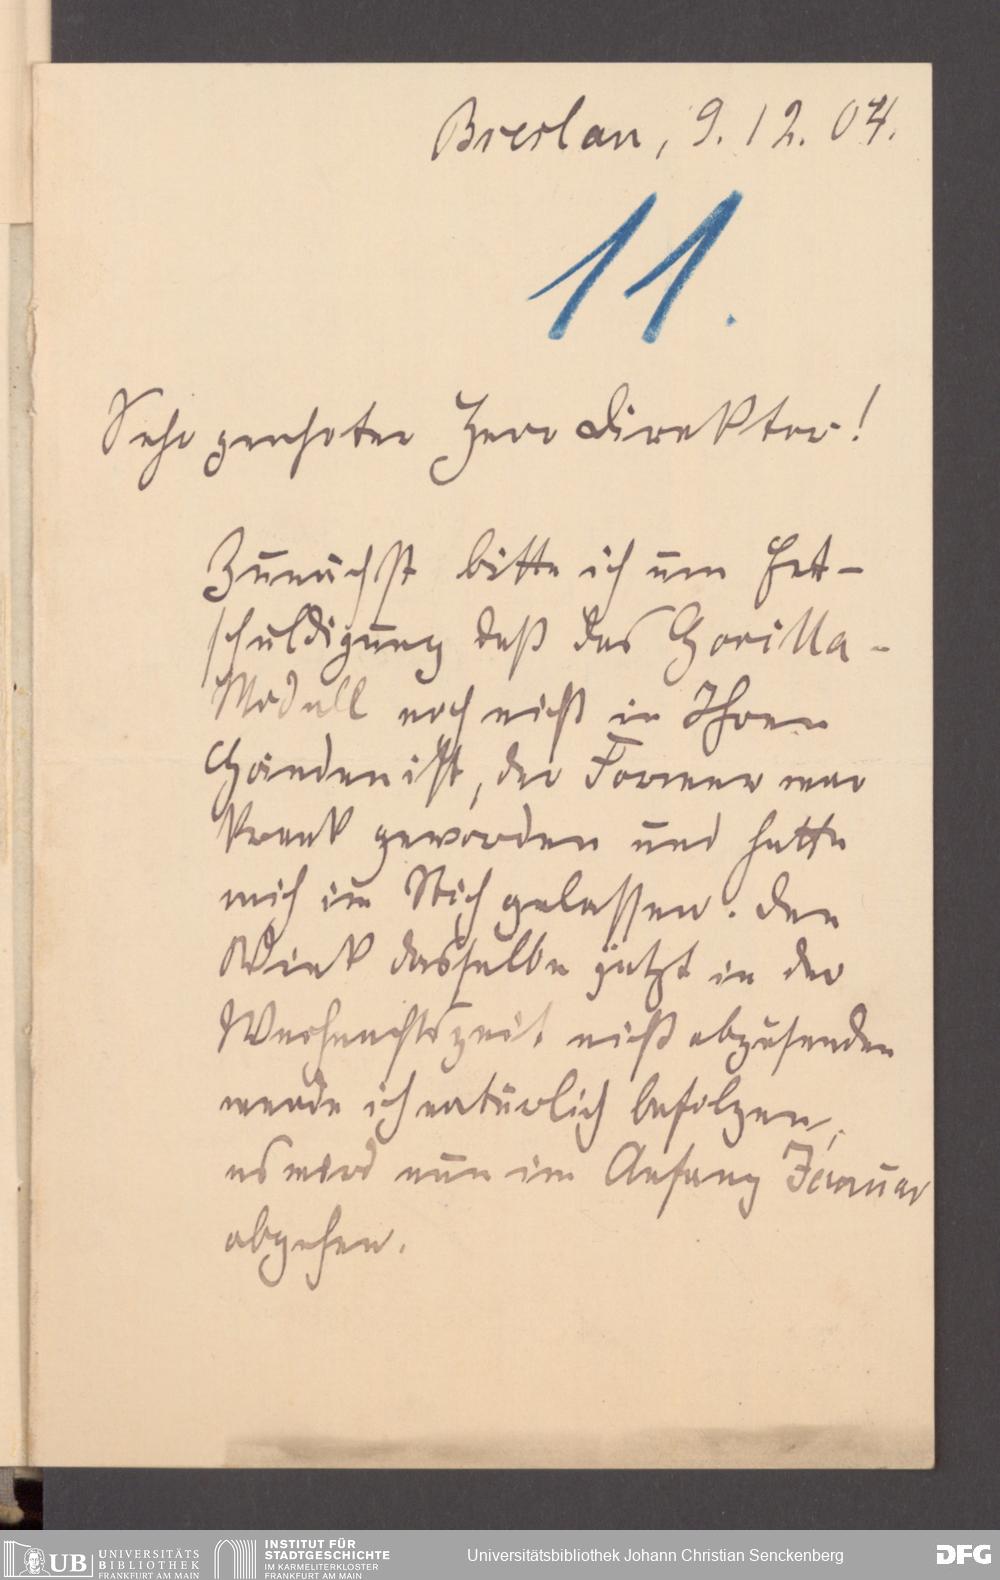 Breslau, 9.12.04.
11.
Sehr geehrter Herr Direktor!
Zunächst bitte ich um Ent-
schuldigung daß das Gorilla-
Modell noch nicht in Ihren
Händen ist, der Former war
krank geworden und hatte
mich im Stich gelassen. Den
Wink dasselbe jetzt in der
Weihnachtszeit nicht abzusenden
werde ich natürlich befolgen,
es wird nun im Anfang Januar
abgehen.
UB UNIVERSITÄTS
BIBLIOTHEK
FRANKFURT AM MAIN
INSTITUT FÜR
STADTGESCHICHTE
IM KARMELITERKLOSTER
FRANKFURT AM MAIN
Universitätsbibliothek Johann Christian Senckenberg
DFG